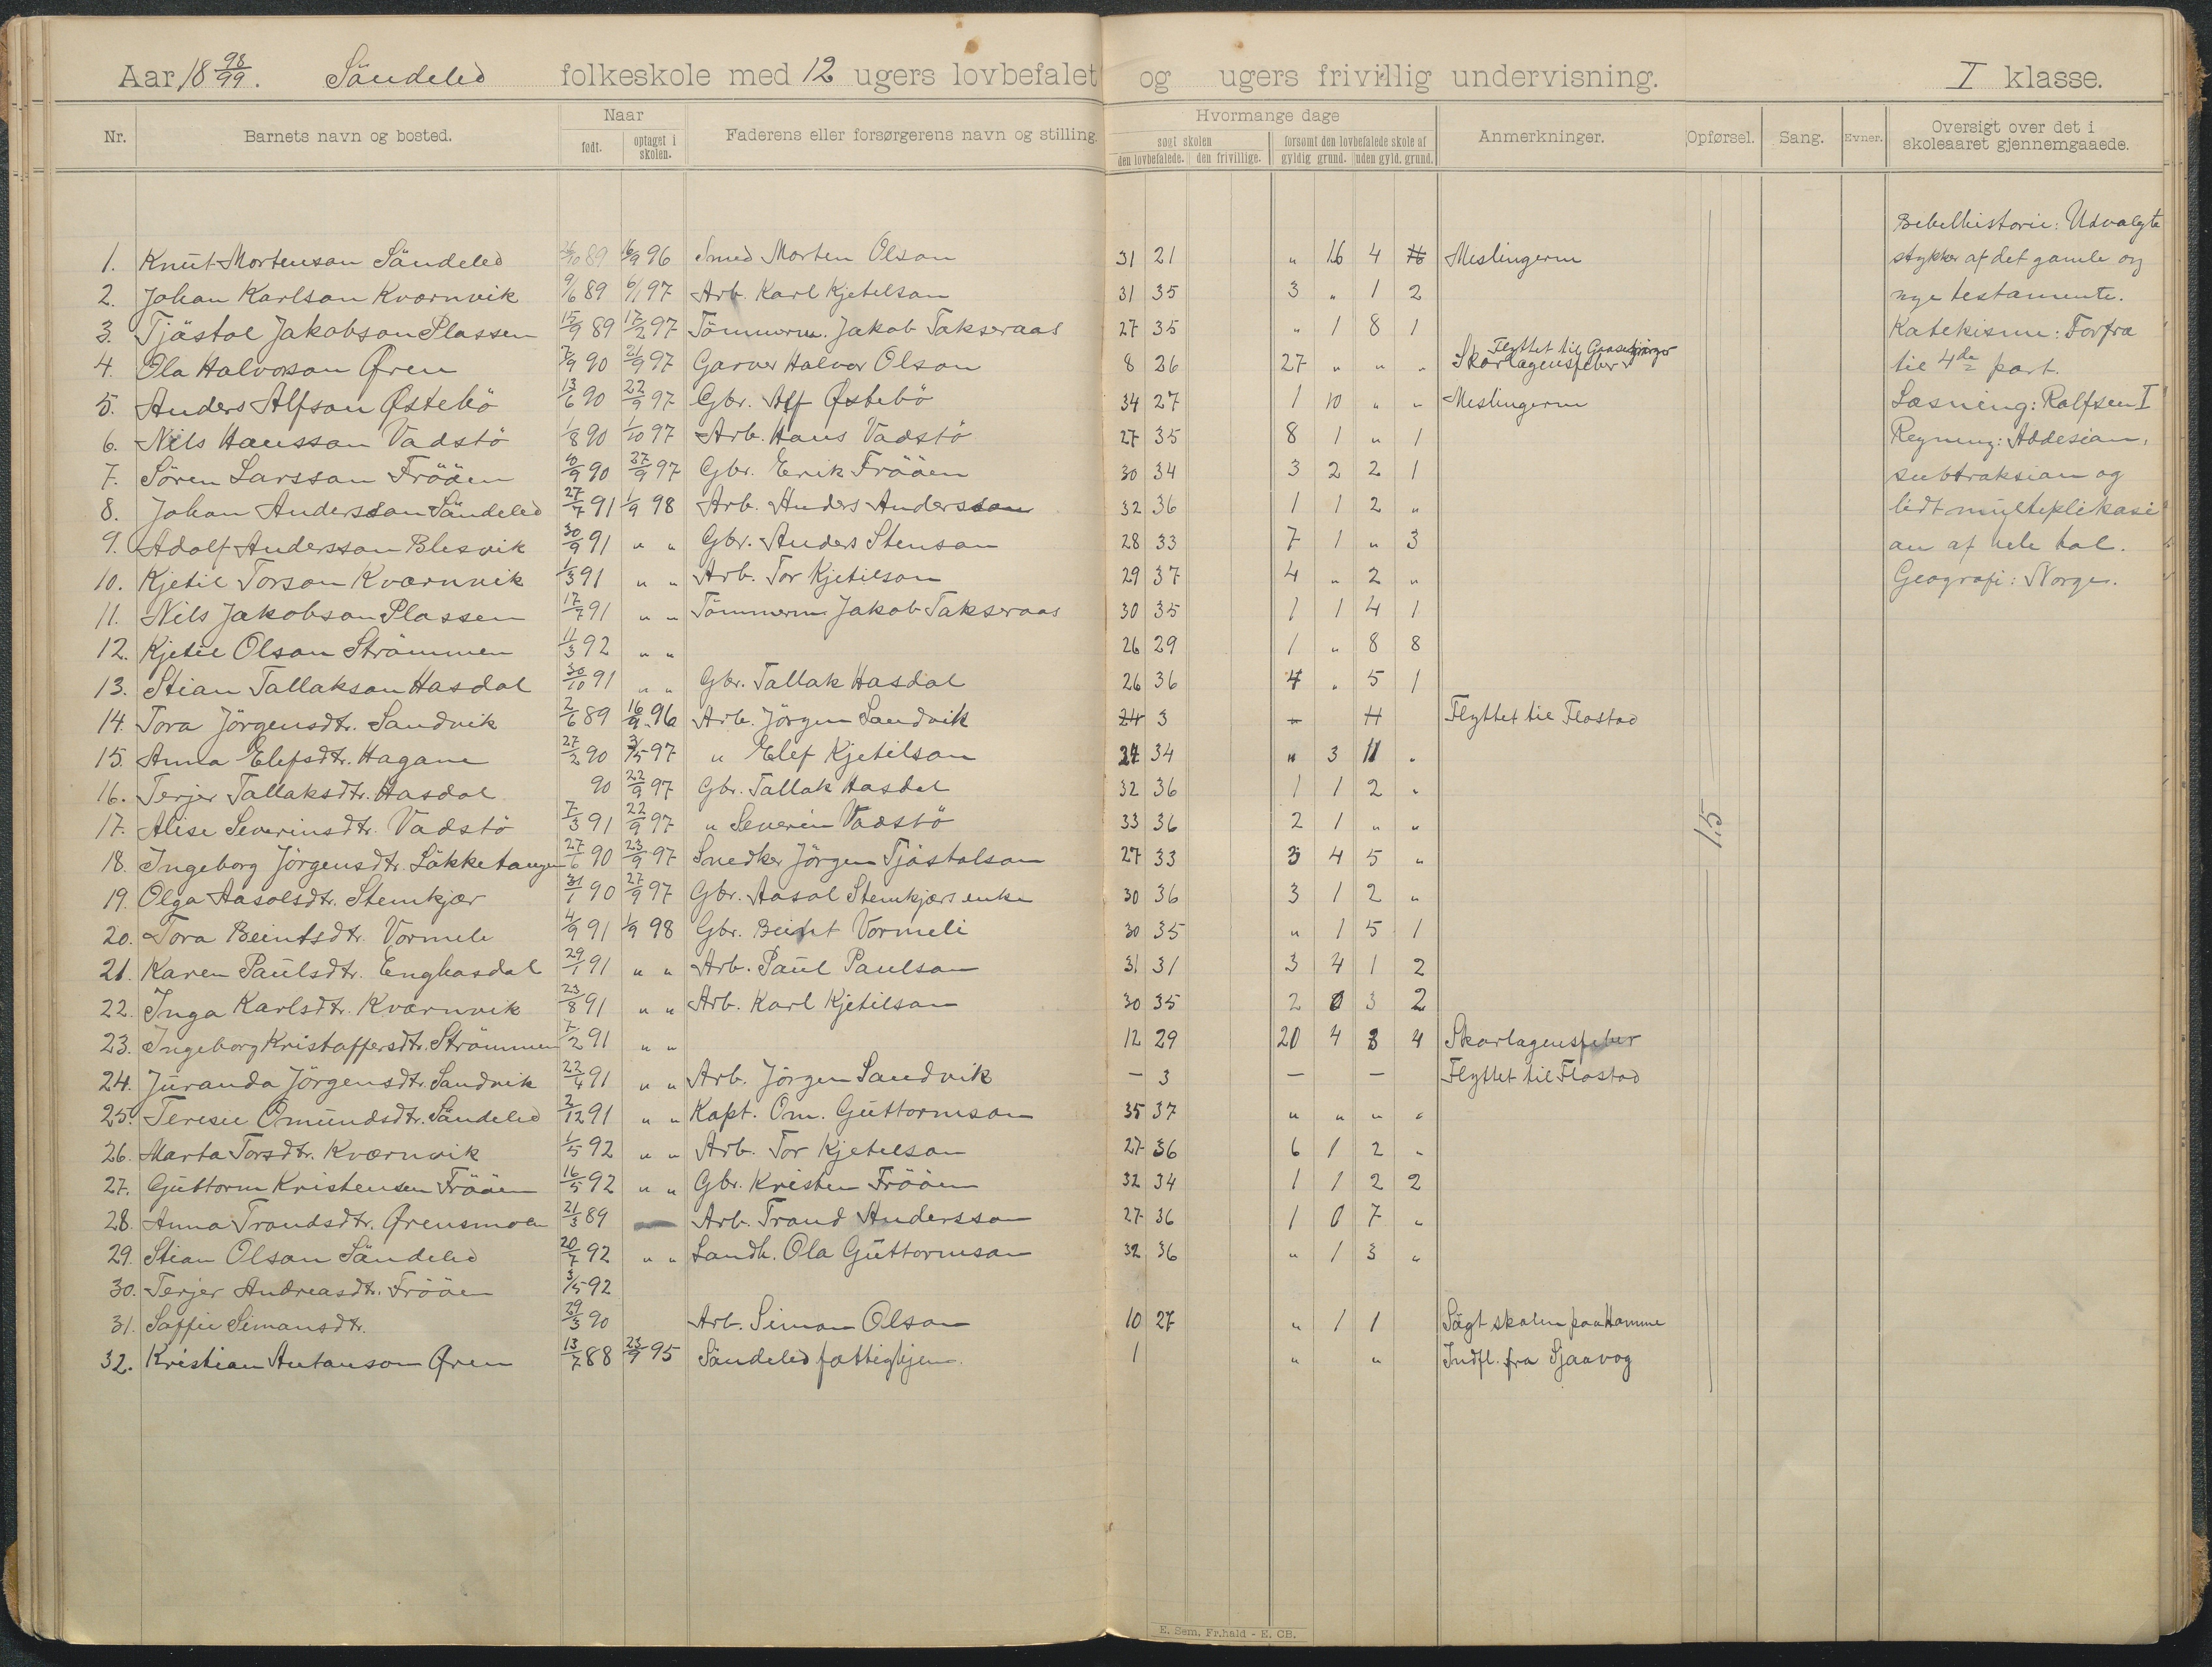 Aar 18 98/99. Söndeled folkeskole med 12 ugers lovbefalet og ugers frivillig undervisning. I klasse.
Nr. Barnets navn og bosted. Naar født. optaget i skolen. Faderens eller forsørgerens navn og stilling. Hvormange dage søgt skolen den lovbefalede. den frivillige. forsømt den lovbefalede skole af gyldig grund. uden gyld. grund. Anmerkninger. Opførsel. Sang. Evner. Oversigt over det i skoleaaret gjennemgaaede.
1. Knut Mortenson Söndeled 89 16/9 96 Smed Morten Olson 31 21 " 16 4 Meslingerne
2. Johan Karlson Kværnvik 9/6 89 6/1 97 Arb. Karl Kjetelson 31 35 3 " 1 2
3. Tjöstol Jakobson Plassen 15/9 89 17/2 97 Tömmerm. Jakob Takseraas 27 35 " 1 8 1
4. Ola Halvorson Øren 7/9 90 21/9 97 Garver Halvor Olson 8 26 27 " " " Skarlagensfeber Flyttet til
5. Anders Alfson Østebö 13/6 90 22/9 97 Gbr. Alf Østebö 34 27 1 10 " " Meslingerne
6. Nils Hansson Vadstö 1/8 90 1/10 97 Arb. Hans Vadstö 27 35 8 1 " 1
7. Sören Larsson Frööen 90 27/9 97 Gbr. Erik Frööen 30 34 3 2 2 1
8. Johan Andersson Söndeled 27/7 91 1/9 98 Arb. Anders Andersson 32 36 1 1 2 "
9. Adolf Andersson Blesvik 30/9 91 " " Gbr. Anders Stenson 28 33 7 1 " 3
10. Kjetil Torson Kværnvik 1/3 91 " " Arb. Tor Kjetilson 29 37 4 " 2 "
11. Nils Jakobson Plassen 17/7 91 " " Tömmerm. Jakob Takseraas 30 35 1 1 4 1
12. Kjetil Olson Strömmen 11/3 92 " " 26 29 1 " 8 8
13. Stian Tallakson Hasdal 30/10 91 " " Gbr. Tallak Hasdal 26 36 4 " 5 1
14. Tora Jörgensdtr. Sandvik 2/6 89 16/9 96 Arb. Jörgen Sandvik 24 3 Flyttet til Flostad
15. Anna Elefsdtr. Hagane 27/2 90 3/5 97 " Elef Kjetilson 24 34 " 3 11 "
16. Terjer Tallaksdtr. Hasdal 90 22/9 97 Gbr. Tallak Hasdal 32 36 1 1 2 "
17. Alise Severinsdtr. Vadstö 7/3 91 22/9 97 " Severin Vadstö 33 36 2 1 " "
18. Ingeborg Jörgensdtr. Lökketangen 27/6 90 23/9 97 Snedker Jörgen Tjöstolson 27 33 3 4 5 "
19. Olga Aasolsdtr. Stemkjær 31/1 90 27/9 97 Gbr. Aasol Stemkjærs enke 30 36 3 1 2 "
20. Tora Beintsdtr. Vormeli 4/9 91 1/9 98 Gbr. Beint Vormeli 30 35 " 1 5 1
21. Karen Paulsdtr. Enghasdal 29/1 91 " " Arb. Paul Paulson 31 31 3 4 1 2
22. Inga Karlsdtr. Kværnvik 23/8 91 " " Arb. Karl Kjetilson 30 35 2 0 3 2
23. Ingeborg Kristoffersdtr. Strömmen 7/2 91 " " 12 29 20 4 8 4 Skarlagensfeber
24. Juranda Jörgensdtr. Sandvik 22/4 91 " " Arb. Jörgen Sandvik — 3 — — Flyttet til Flostad
25. Teresie Omundsdtr. Söndeled 2/12 91 " " Kapt. Om. Guttormson 35 37 " " " "
26. Marta Torsdtr. Kværnvik 1/5 92 " " Arb. Tor Kjetelson 27 36 6 1 2 "
27. Guttorm Kristensen Frööen 16/5 92 " " Gbr. Kristen Frööen 32 34 1 1 2 2
28. Anna Trondsdtr. Ørensmoen 21/3 89 Arb. Trond Andersson 27 36 1 0 7 "
29. Stian Olson Söndeled 20/7 92 " " Landh. Ola Guttormson 32 36 " 1 3 "
30. Terjer Andreasdtr. Frööen 3/5 92
31. Soffie Simonsdtr. 29/3 90 Arb. Simon Olson 10 27 " 1 1 Sögt skolen paa Hamme
32. Kristian Antonson Øren 13/7 88 23/9 95 Söndeled fattighjem. 1 " " Indfl. fra Sjaavog
1.5
Bibelhistorie: Udvalgte
stykker af det gamle og
nye testamente.
Katekisme: Forfra
til 4de part.
Læsning: Rolfsen I
Regning: Addesion,
subtraksion og
lidt multeplikasi
on af hele tal.
Geografi: Norge.
E. Sem, Fr.hald - E. CB.